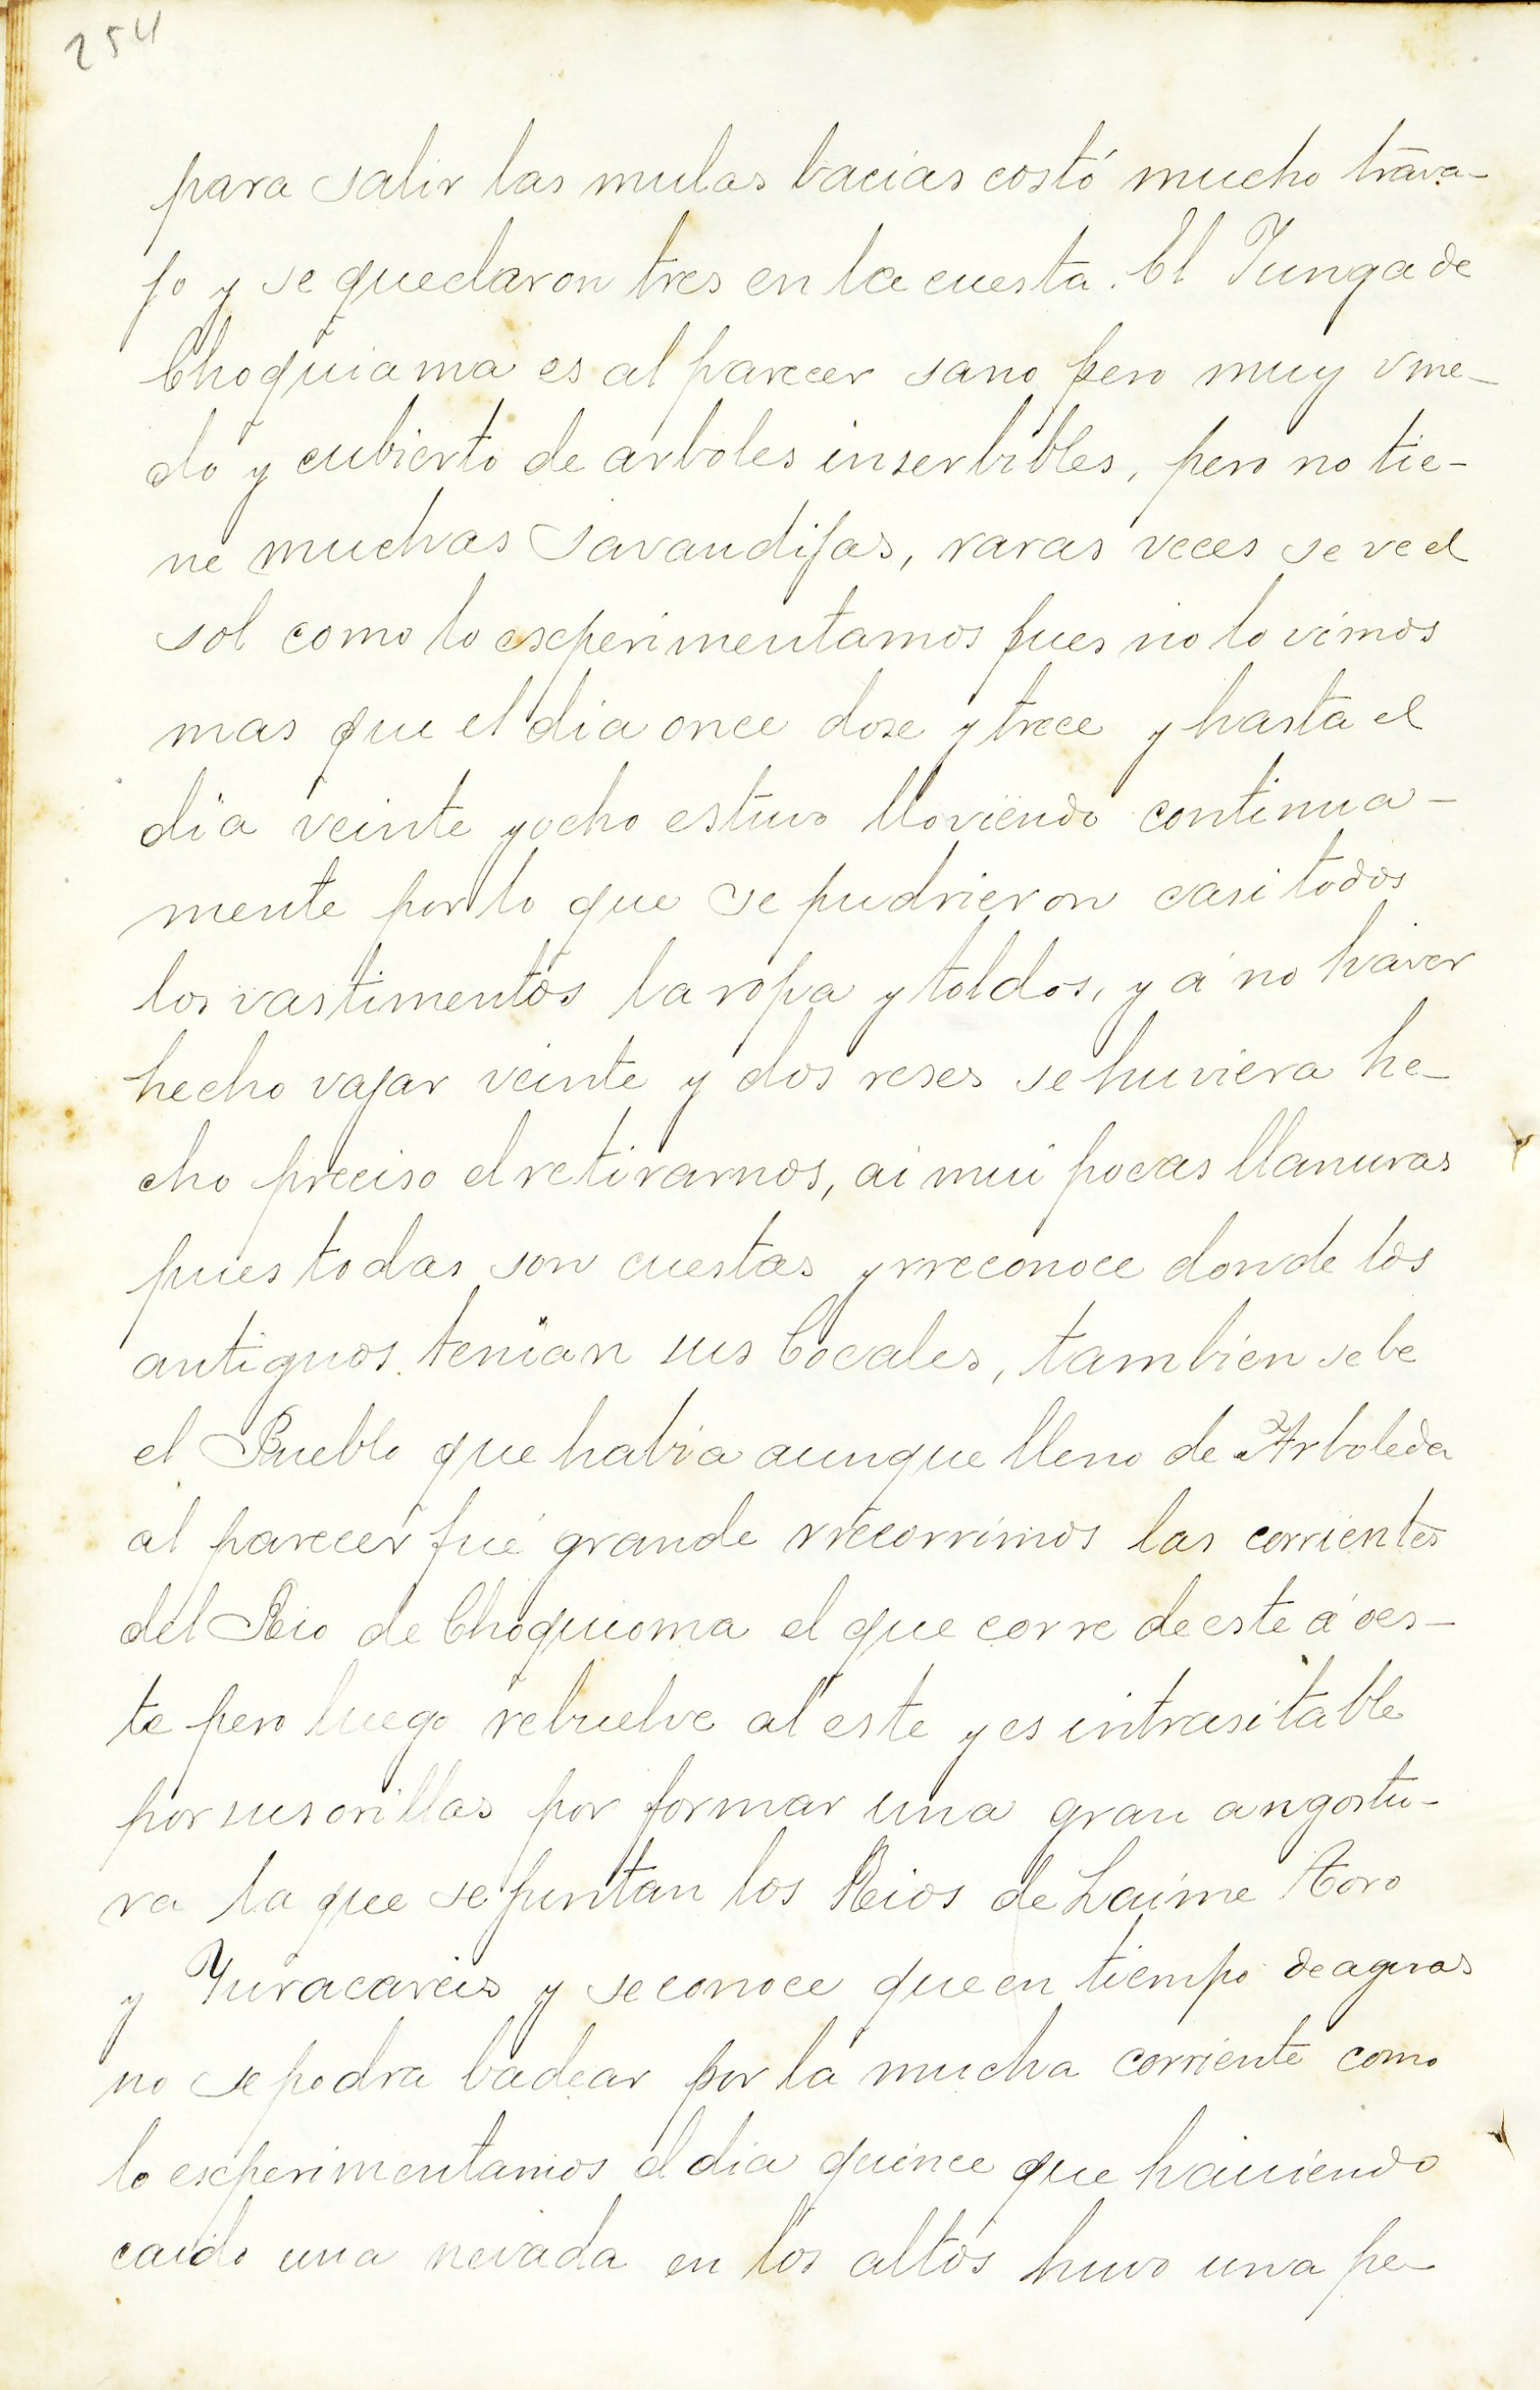 254
para salir las mulas bacias costó mucho trava-
jo y se quedaron tres en la cuesta. El Yunga de
Choquiama es al parecer sano pero muy vme-
do y cubierto de arboles inserbibles, pero no tie-
ne muchas savandijas, raras veces se ve el
sol como lo experimentamos pues no lo vimos
mas que el dia once dose y trece y hasta el
dia veinte y ocho estuvo lloviendo continua-
mente por lo que se pudrieron casi todos
los vastimentos la ropa y toldos, y á no haver
hecho vajar veinte y dos reses se huviera he-
cho preciso el retirarnos, ai mui pocas llanuras
pues todas son cuestas y rreconoce donde los
antiguos tenian sus Cocales, tambien se be
el Pueblo que habia aunque lleno de Arboleda
al parecer fué grande rrecorrimos las corrientes
del Rio de Choquioma el que corre de este á oes-
te pero luego rebuelve al este y es intrasitable
por sus orillas por formar una gran angostu-
ra la que se juntan los Rios de Laime Toro
y Yuracareis y se conoce que en tiempo de aguas
no se podra badear por la mucha corriente como
lo experimentamos el dia quince que haviendo
caido una nevada en los altos huvo una pe-